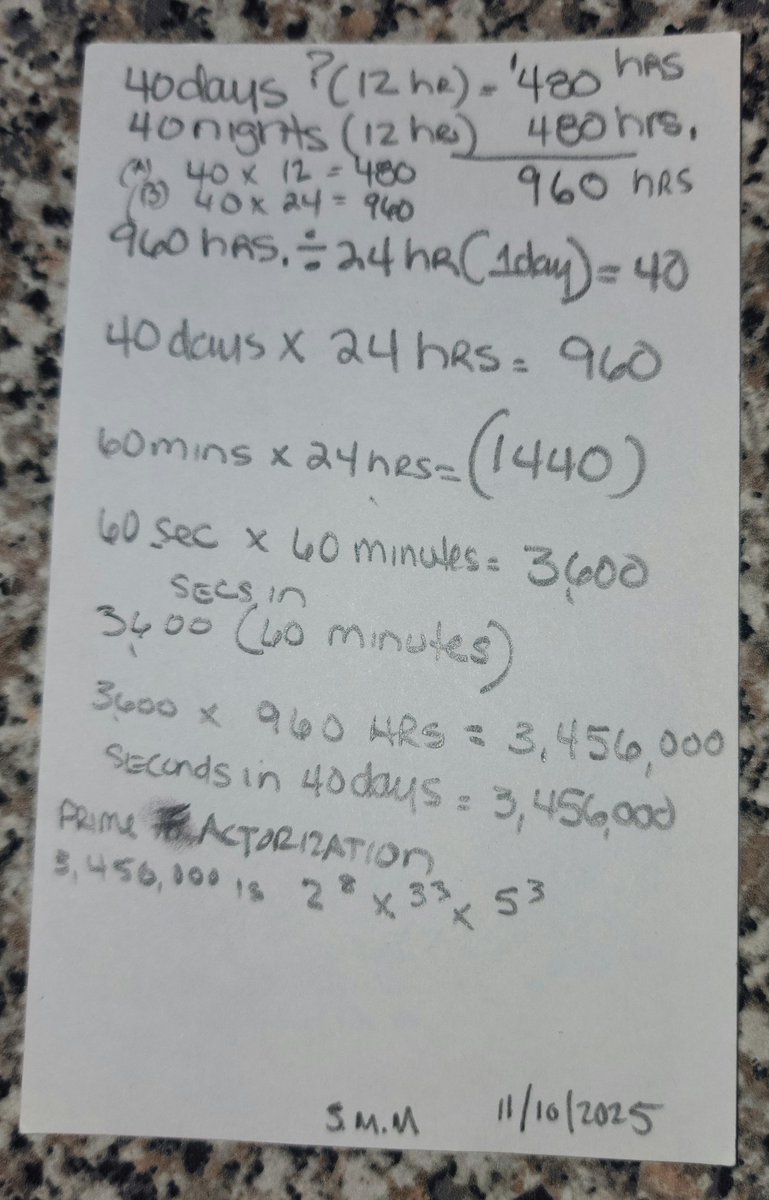 40 days ? (12 hr) = 480 hrs
40 nights (12 hrs) 480 hrs.
(A) 40 x 12 = 480
960 HRS
(B) 40 x 24 = 960
960 hrs. ÷ 24 hr (1 day) = 40
40 days x 24 hrs = 960
60 mins x 24 hrs = (1440)
60 sec x 60 minutes = 3,600
SECS in
3,600 (60 minutes)
3,600 x 960 HRS = 3,456,000
Seconds in 40 days = 3,456,000
PRIME FACTORIZATION
3,456,000 is 2⁸ x 3³ x 5³
S.M.M 11/10/2025